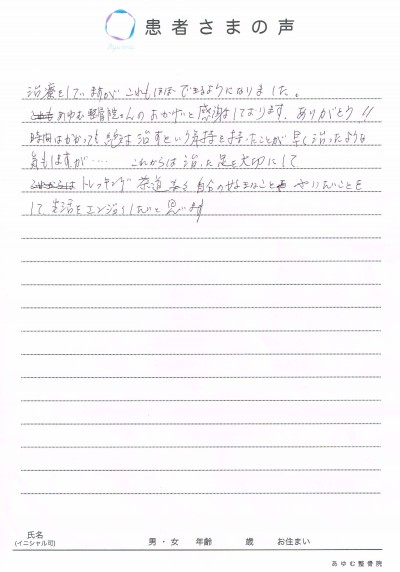 患者さまの声
治療をしていますが これもほぼできるようになりました。
あゆむ整骨院さんのおかげと感謝しております。ありがとう!!
時間はかかっても絶対治すという気持を持ったことが早く治ったような
気もしますが…… これからは治った足を大切にして
トレッキング 茶道 など 自分の好きなこと やりたいことを
して生活をエンジョイしたいと思います
氏名
(イニシャル可)
男・女 年齢 歳 お住まい
あゆむ整骨院